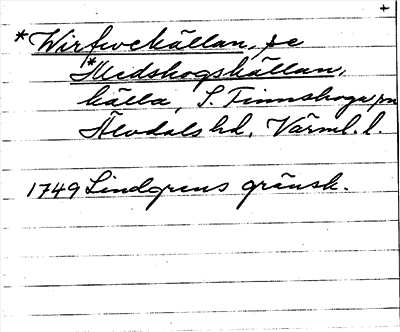 +
*Wirfvekällan, se
*Medskogskällan,
källa, S. Finnskoga sn
Älvdals hd, Värml. l.
1749 Lindgrens gränsk.